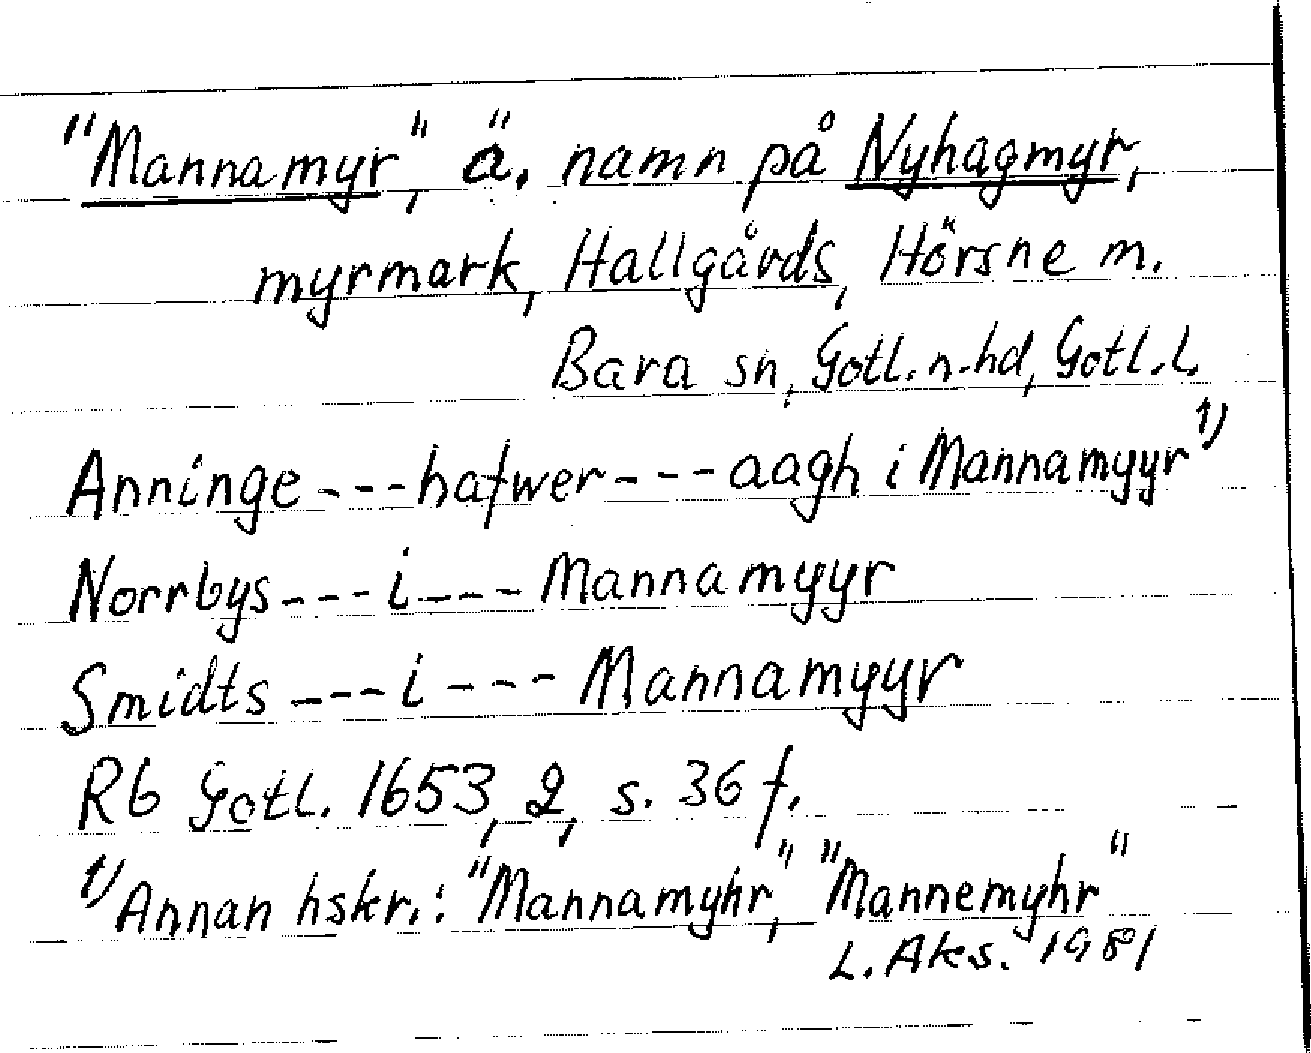 "Mannamyr," ä. namn på Nyhagmyr,
myrmark, Hallgårds, Hörsne m.
Bara sn, Gotl. n. hd, Gotl. l.
Anninge---hafwer---aagh i Mannamyyr 1)
Norrbys---i---Mannamyyr
Smidts---i---Mannamyyr
Rb Gotl. 1653, 2, s. 36 f.
1) Annan hskr.: "Mannamyhr," "Mannemyhr"
L. Aks. 1981